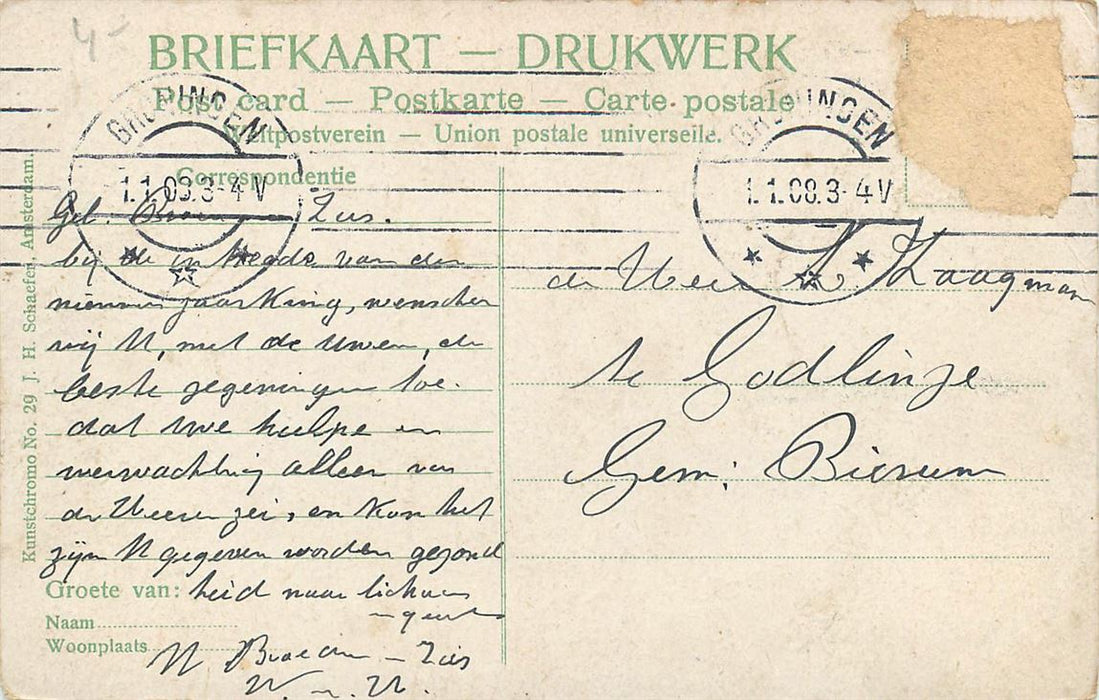 4-
BRIEFKAART — DRUKWERK
Post card — Postkarte — Carte postale
Weltpostverein — Union postale universelle.
GRONINGEN
1.1.08.3-4V
GRONINGEN
1.1.08.3-4V
Correspondentie
Gel. Broer en Zus.
bij de intrede van den
nieuwen jaarkring, wenschen
wij U, met de uwen, de
beste zegeningen toe.
dat uwe hulpe en
verwachting alleen van
den Heere zei, en kon het
zijn U gegeven worden gezond
Groete van: heid naar lichaam
en geest
Naam
Woonplaats
U Broer en Zus
de Heer L. Zaagman
te Godlinze
Gem: Bierum
Kunstchromo No. 29 J. H. Schaefer, Amsterdam.